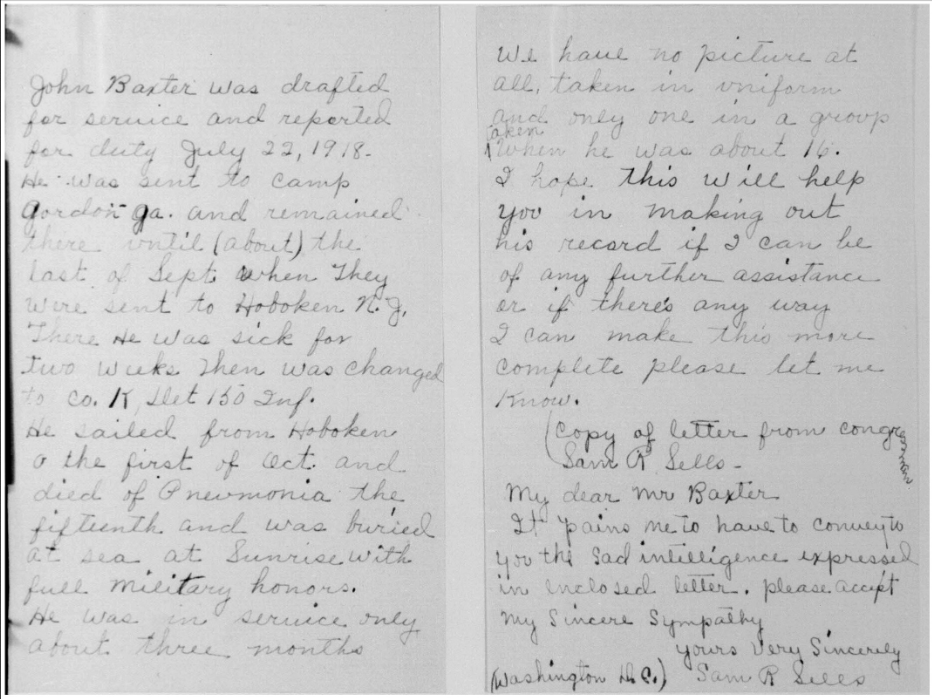 John Baxter was drafted
for service and reported
for duty July 22, 1918.
He was sent to camp
Gordon Ga. and remained
there until (about) the
last of Sept when They
were sent to Hoboken N.J.
There He was sick for
two weeks Then was changed
to Co. K, Det 150 Inf.
He sailed from Hoboken
o the first of Oct. and
died of Pneumonia the
fifteenth and was buried
at sea at Sunrise with
full military honors.
He was in service only
about three months
We have no picture at
all, taken in uniform
and only one in a group
taken
when he was about 16.
I hope this will help
you in making out
his record if I can be
of any further assistance
or if there's any way
I can make this more
complete please let me
know.
(Copy of letter from congressman
Sam R Sells -
My dear Mr Baxter
It pains me to have to convey to
you the sad intelligence expressed
in enclosed letter. please accept
my Sincere Sympathy
yours Very Sincerely
(Washington D.C.) Sam R Sells